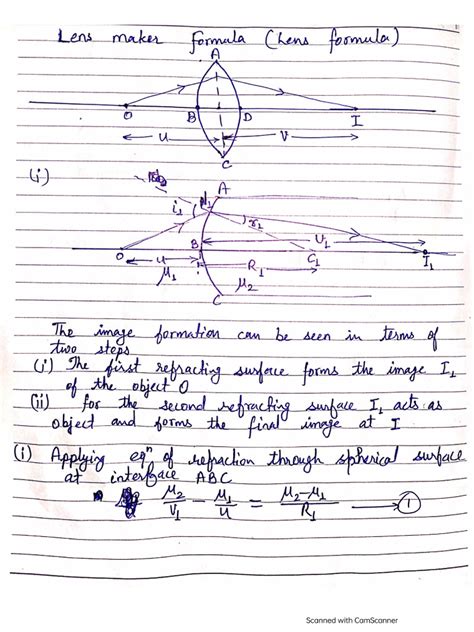 Lens maker formula (Lens formula)
A
O B D I
u v
C
(i)
A
i₁ N₁ r₁
V₁
O B C₁ I₁
u R₁
μ₁ μ₂
C
The image formation can be seen in terms of
two steps
(i) The first refracting surface forms the image I₁
of the object O
(ii) for the second refracting surface I₁ acts as
object and forms the final image at I
(i) Applying eqⁿ of refraction through spherical surface
at interface ABC
μ₂/V₁ - μ₁/u = μ₂-μ₁/R₁ → ①
Scanned with CamScanner